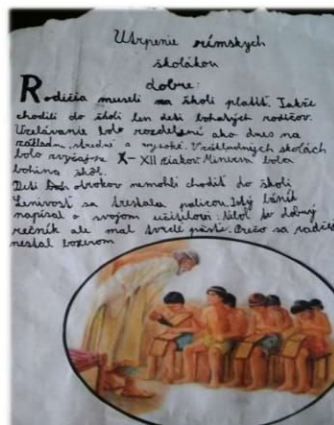 Utrpenie rímskych
školákov
dobre:
Rodičia museli za školu platiť. Takže
chodili do školi len deti bohatých rodičov.
Vzelávanie bolo rozdelené ako dnes na
základné, stredné a vysoké. V základných školách
bolo zvyčajne X- XII žiakov. Minerva bola
bohiňa škôl.
Deti otrokov nemohli chodiť do školi
Lenivosť sa trestala palicou. Istý básnik
napísal o svojom učiteľovi: Nebol dobrý
rečník ale mal tvrdé päste. Prečo sa radšej
nestal boxerom